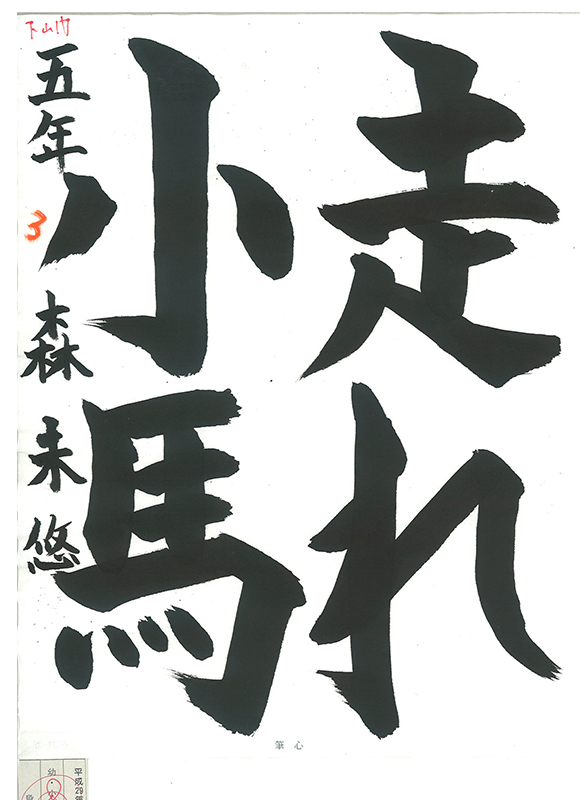 走れ
小馬
五年 森未悠
下山門
3
心筆
平成29年
幼
段